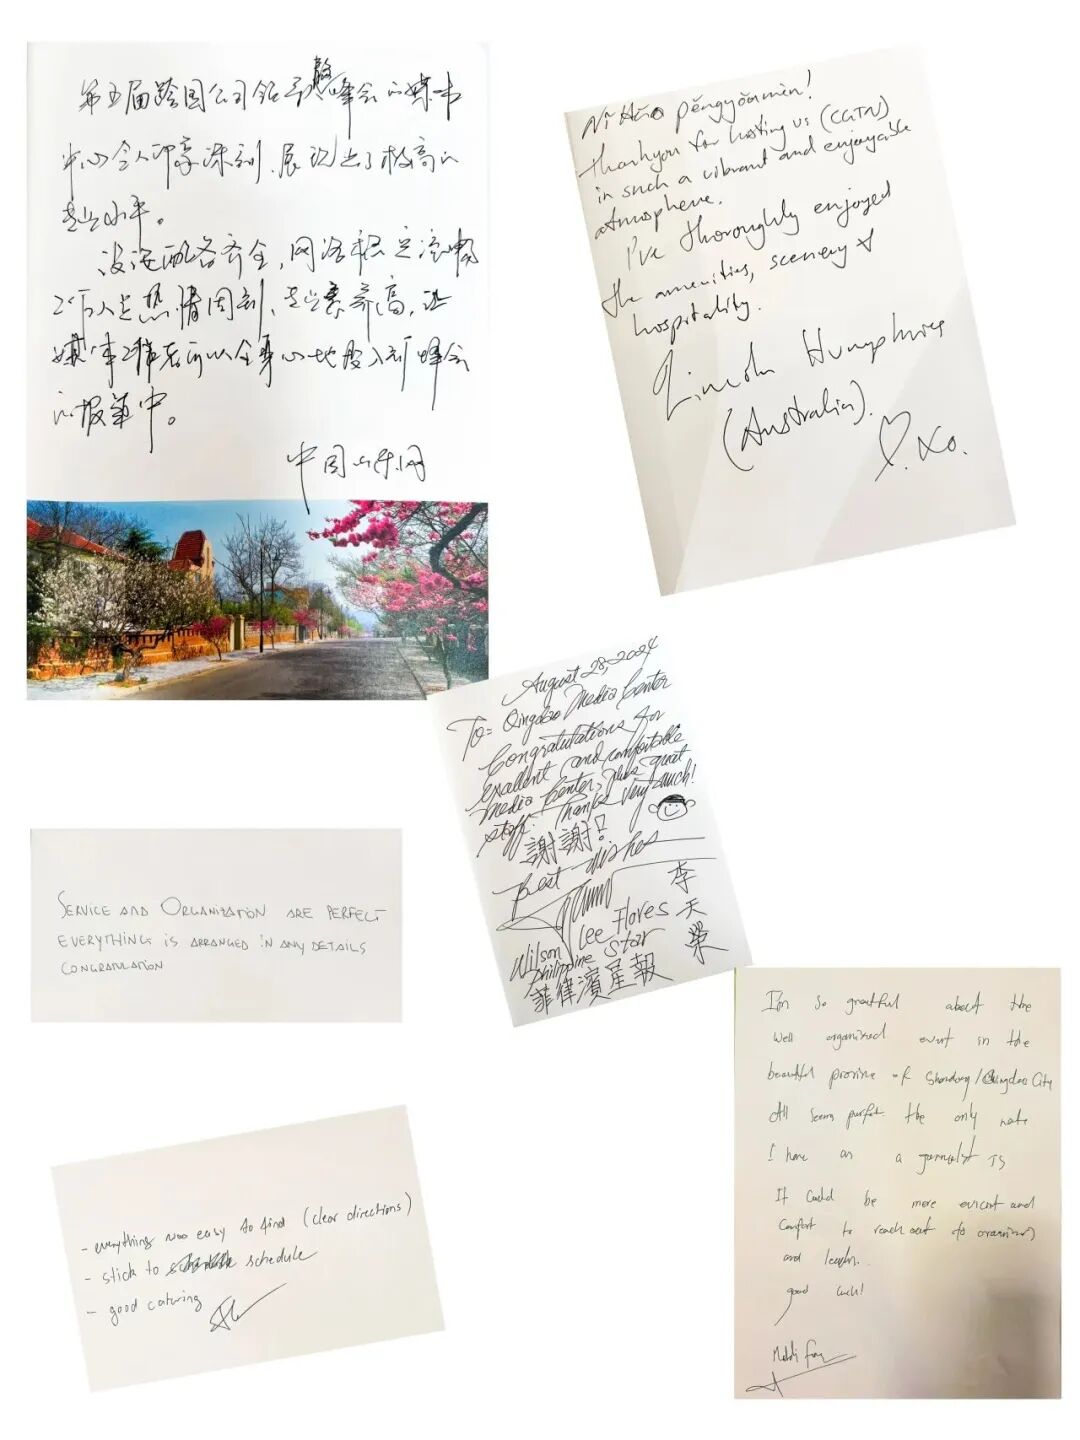 第五届跨国公司领导人峰会的媒体
中心令人印象深刻，展现出了极高的
专业水平。
设施配备齐全，网络稳定流畅
工作人员热情周到、专业素养高，让
媒体工作者可以全身心地投入到峰会
的报道中。
中国山东网
Nǐ Hǎo péngyǒumen!
Thankyou for hosting us (CGTN)
in such a vibrant and enjoyable
atmosphere.
I've thoroughly enjoyed
the amenities, scenery &
hospitality.
Lincoln Humphries
(Australia).
xo.
August 28, 2024
To= Qingdao Media Center
Congratulations for
excellent and comfortable
Media Center, plus great
staff! Thanks very much!
謝謝!
Best wishes
Wilson Lee Flores
Philippine Star
菲律濱星報
李天榮
SERVICE AND ORGANIZATION ARE PERFECT
EVERYTHING IS ARRANGED IN ANY DETAILS
CONGRATULATION
- everything was easy to find (clear directions)
- stick to schedule
- good catering
I'm so greatful about the
well organized event in the
beautiful province of Shandong/Qingdao City
All seems perfet the only note
I have as a journalist IS
It could be more evicent and
comfort to reach out to organizers
and leaders.
good luck!